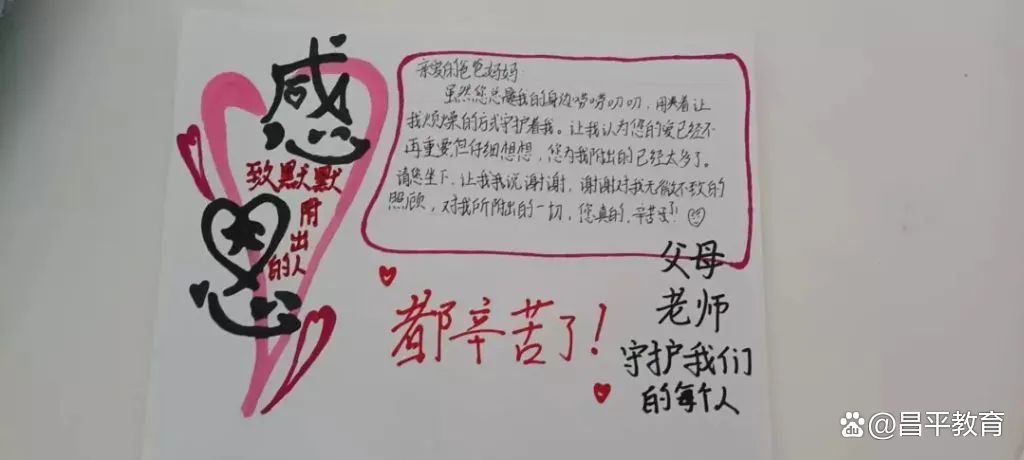 感恩
致默默
附出
的人
亲爱的爸爸妈妈
虽然您总是在我的身边唠唠叨叨，用着让
我烦燥的方式守护着我。让我认为您的爱已经不
再重要，但仔细想想，您为我附出的已经太多了。
请您坐下，让我我说谢谢，谢谢对我无微不致的
照顾，对我所附出的一切，您真的，辛苦了！
都辛苦了！
父母
老师
守护我们
的每个人
@昌平教育